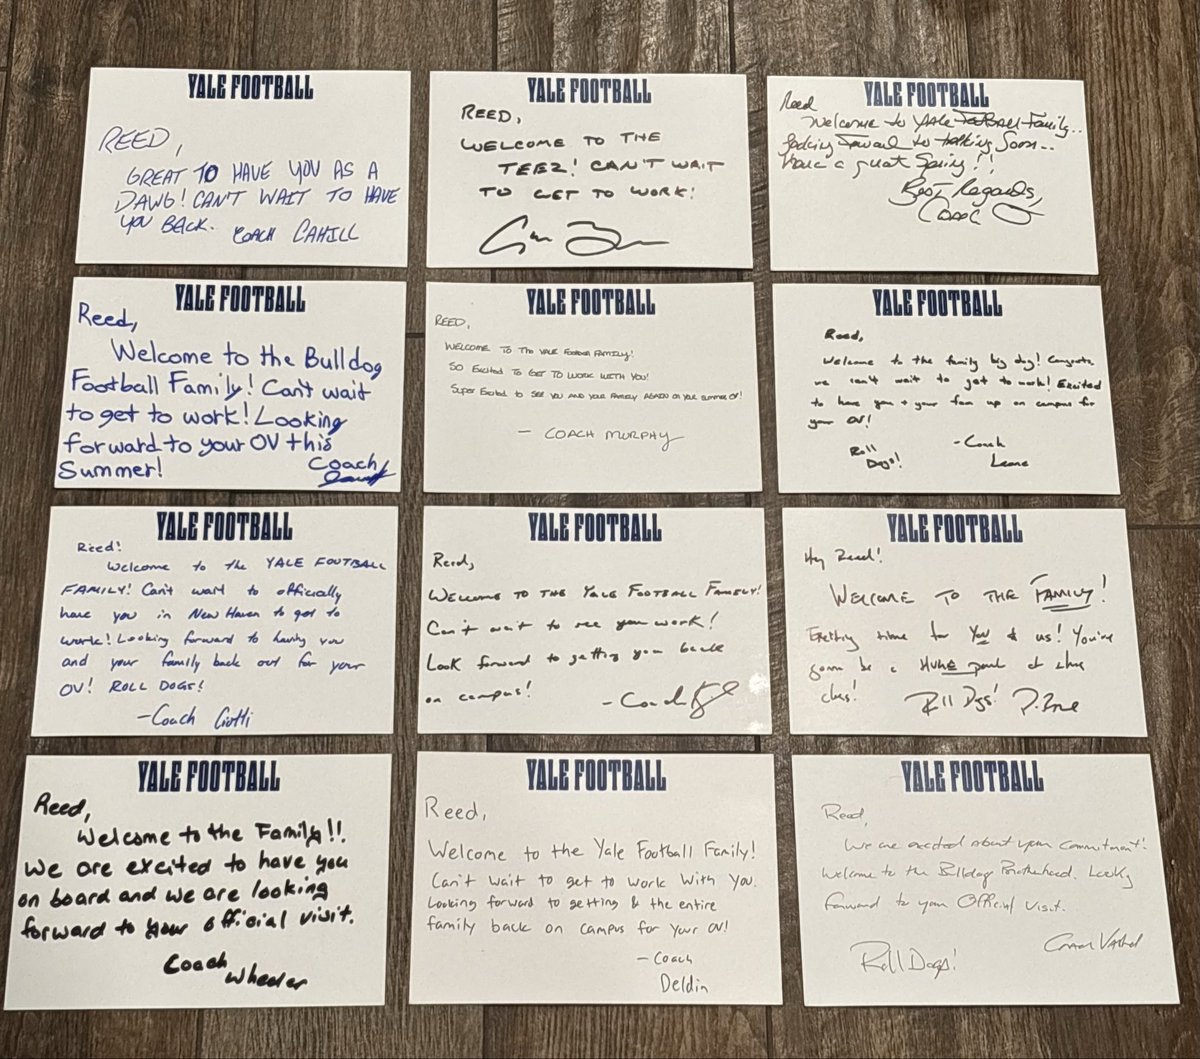 YALE FOOTBALL
REED,
GREAT TO HAVE YOU AS A
DAWG! CAN'T WAIT TO HAVE
YOU BACK. COACH CAHILL
YALE FOOTBALL
REED,
WELCOME TO THE
TEEZ! CAN'T WAIT
TO GET TO WORK!
YALE FOOTBALL
Reed
Welcome to Yale Football Family..
looking Forward to talking Soon..
have a great Spring!!
Best Regards,
Coach
YALE FOOTBALL
Reed,
Welcome to the Bulldog
Football Family! Can't wait
to get to work! Looking
forward to your OV this
Summer! Coach
YALE FOOTBALL
REED,
WELCOME TO THE YALE FOOTBALL FAMILY!
SO EXCITED TO GET TO WORK WITH YOU!
SUPER EXCITED TO SEE YOU AND YOUR FAMILY AGAIN ON YOUR SUMMER OV!
- COACH MURPHY
YALE FOOTBALL
Reed,
Welcome to the family big dog! Congrats
we can't wait to get to work! Excited
to have you + your fam up on campus for
your OV!
Roll
Dogs!
- Coach
Leone
YALE FOOTBALL
Reed!
Welcome to the YALE FOOTBALL
FAMILY! Can't wait to officially
have you in New Haven to get to
work! Looking forward to having you
and your family back out for your
OV! ROLL DOGS!
- Coach Ciotti
YALE FOOTBALL
Reed,
WELCOME TO THE YALE FOOTBALL FAMILY!
Can't wait to see you work!
Look forward to getting you back
on campus!
- Coach
YALE FOOTBALL
Hey Reed!
WELCOME TO THE FAMILY!
Exciting time for You & us! You're
gonna be a HUGE part of this
class!
Roll Dogs!
YALE FOOTBALL
Reed,
Welcome to the Family!!
We are excited to have you
on board and we are looking
forward to your official visit.
Coach
Wheeler
YALE FOOTBALL
Reed,
Welcome to the Yale Football Family!
Can't wait to get to work with you.
Looking forward to getting & the entire
family back on campus for your OV!
- Coach
Deldin
YALE FOOTBALL
Reed,
We are excited about your commitment!
Welcome to the Bulldog Brotherhood. Looking
forward to your Official Visit.
Coach
Roll Dogs!